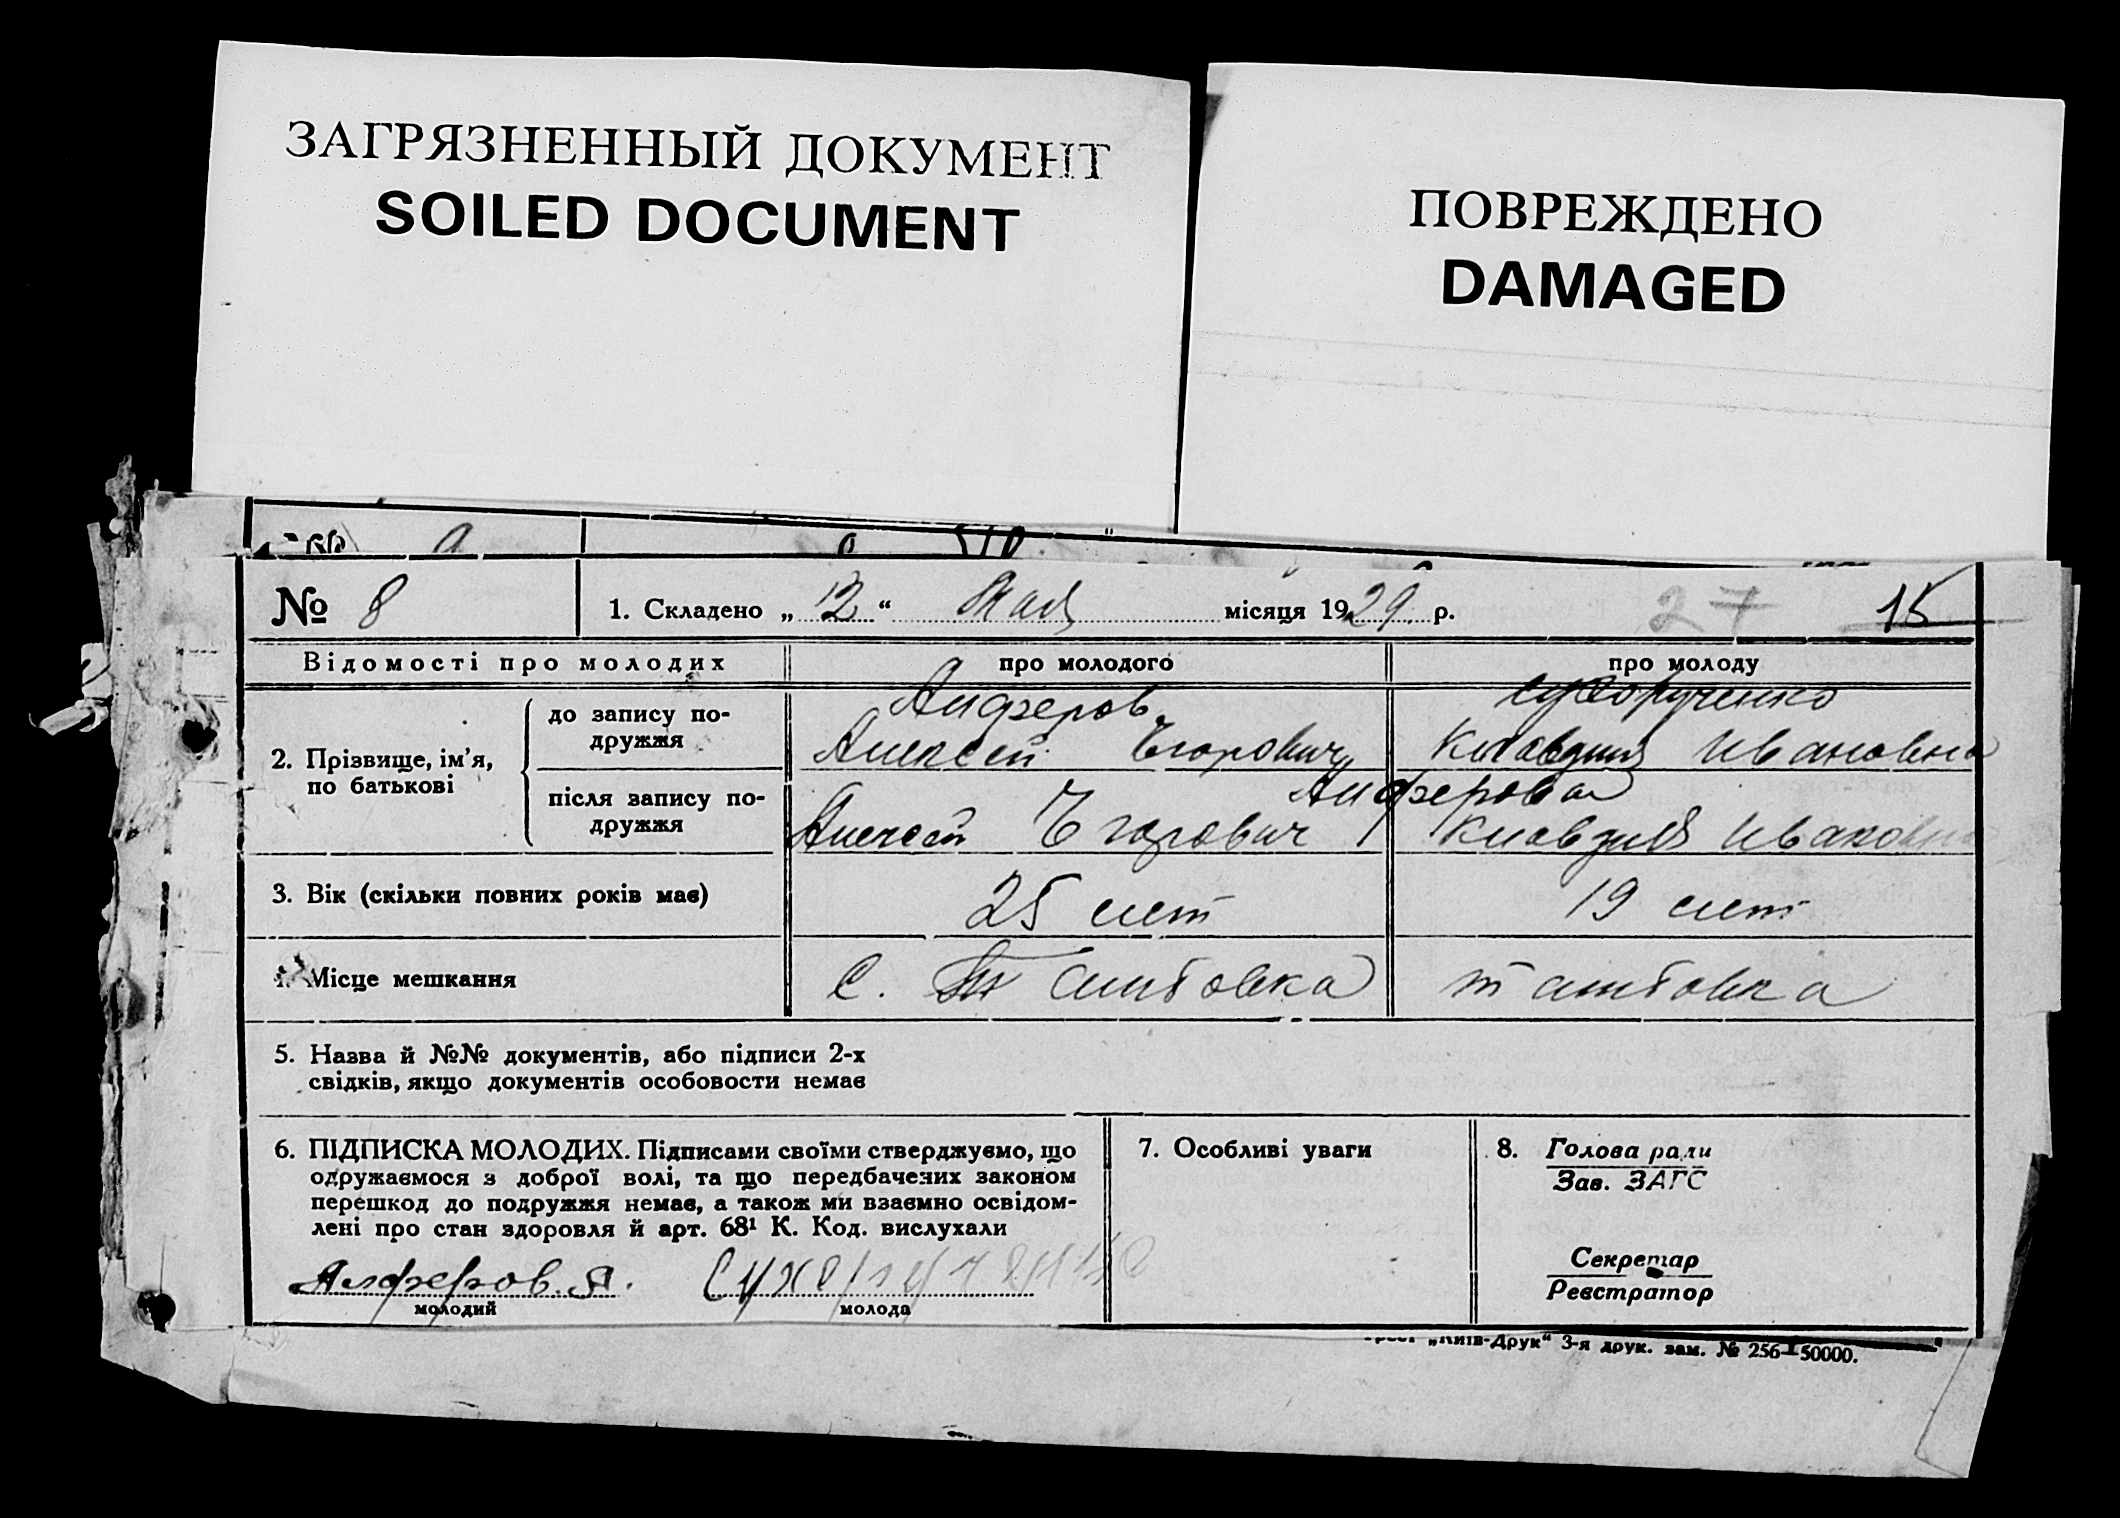 ЗАГРЯЗНЕННЫЙ ДОКУМЕНТ
SOILED DOCUMENT
ПОВРЕЖДЕНО
DAMAGED
№ 8
1. Складено „ 12 “ Мая місяця 1929 р.
27
15
Відомості про молодих
про молодого
про молоду
2. Прізвище, ім’я,
по батькові
до запису по-
дружжя
Алферов
Алексей Егорович
Сухорученко
Клавдия Ивановна
після запису по-
дружжя
Алферовы
Алексей Егорович
Клавдия Ивановна
3. Вік (скільки повних років має)
25 лет
19 лет
4. Місце мешкання
с. Ташбовка
Ташбовка
5. Назва й №№ документів, або підписи 2-х
свідків, якщо документів особовости немає
6. ПІДПИСКА МОЛОДИХ. Підписами своїми стверджуємо, що
одружаємося з доброї волі, та що передбачених законом
перешкод до подружжя немає, а також ми взаємно освідом-
лені про стан здоровля й арт. 68¹ К. Код. вислухали
Алферов. А.
молодий
молода
7. Особливі уваги
8. Голова ради
Зав. ЗАГС
Секретар
Реєстратор
„Київ-Друк“ 3-я друк. зам. № 256—50000.